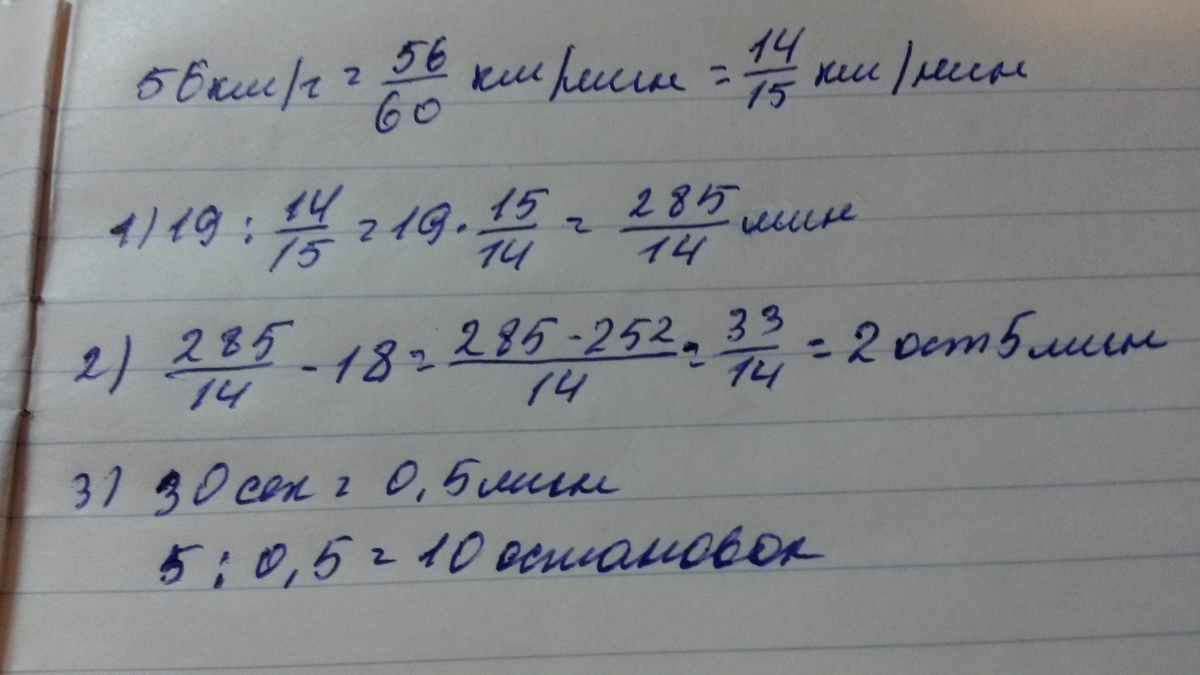 56км/ч = 56/60 км/мин = 14/15 км/мин
1) 19 : 14/15 = 19 · 15/14 = 285/14 мин
2) 285/14 - 18 = 285 - 252/14 = 33/14 = 2 ост 5 мин
3) 30 сек = 0,5 мин
5 : 0,5 = 10 остановок